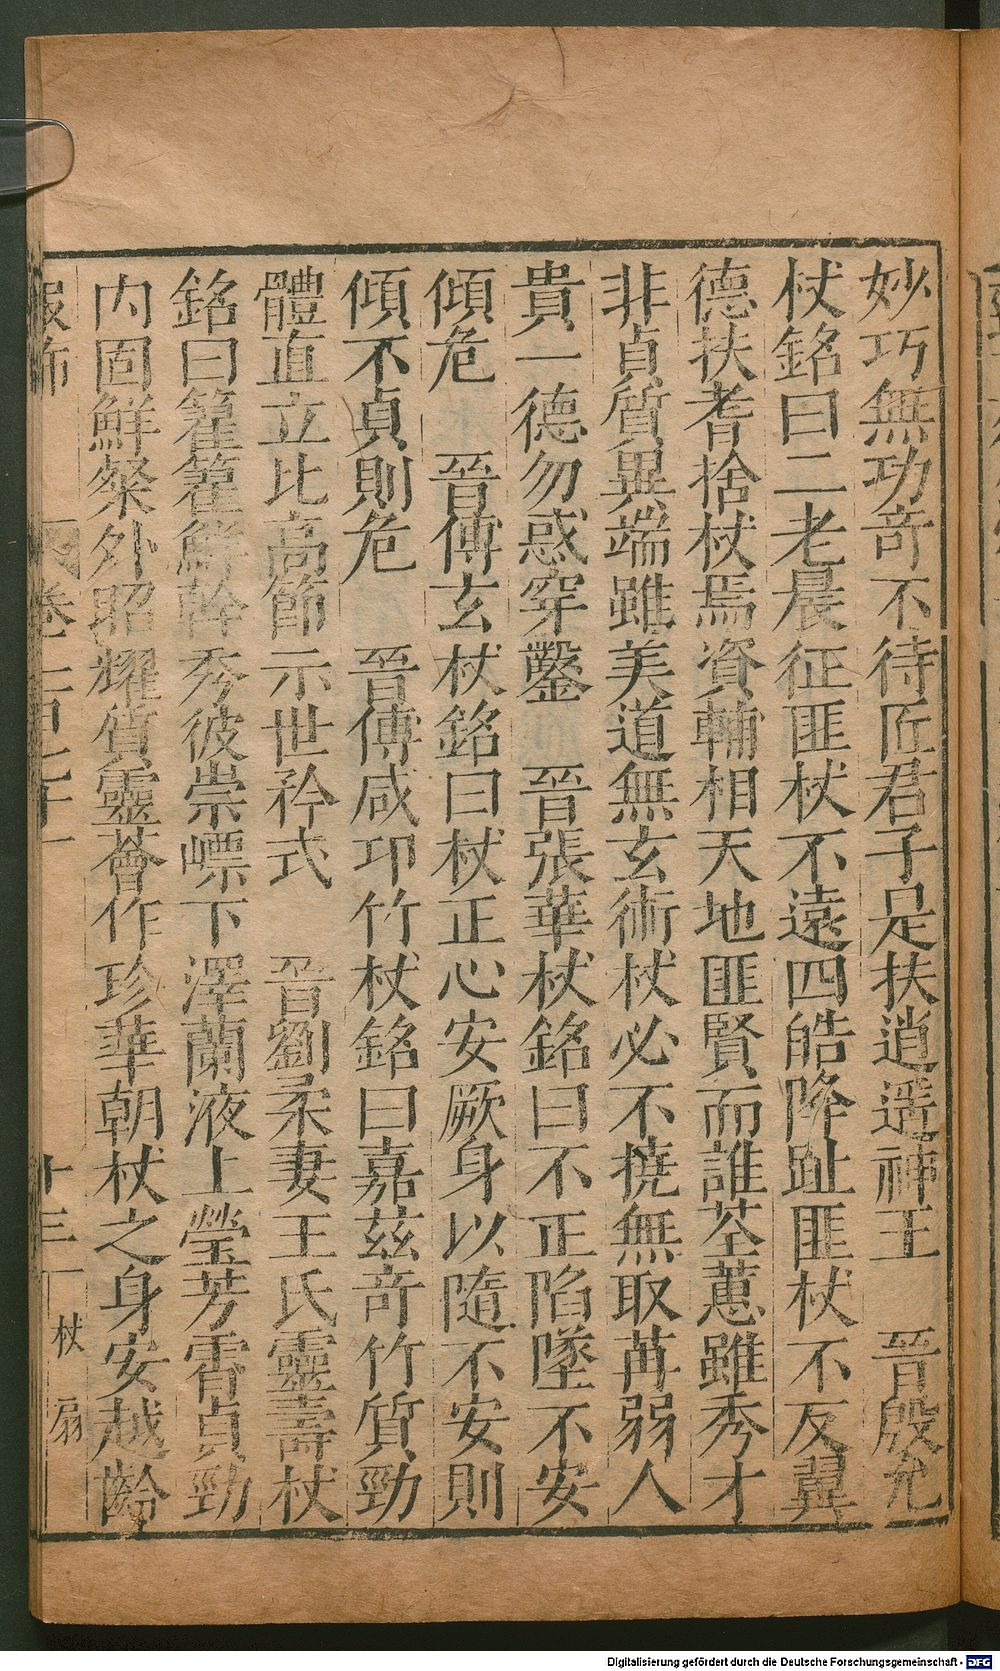 妙巧無功竒不待匠君子足扶逍遥神王　晉殷允
杖銘曰二老晨征匪杖不遠四皓降趾匪杖不反翼
德扶耆捨杖焉資輔相天地匪賢而誰荃蕙雖秀才
非貞質異端雖美道無玄術杖必不撓無取苒弱人
貴一德勿惑穿鑿　晉張華杖銘曰不正陷墜不安
傾危　晉傅玄杖銘曰杖正心安厥身以隨不安則
傾不貞則危　晉傅咸卭竹杖銘曰嘉茲竒竹質勁
體直立比高節示世矜式　晉劉柔妻王氏靈壽杖
銘曰籊籊鮮幹秀彼崇嶫下澤蘭液上瑩芳霄貞勁
内固鮮粲外昭耀質靈薈作珍華朝杖之身安越齡
服飾　卷三百七十一　十三　杖　扇
Digitalisierung gefördert durch die Deutsche Forschungsgemeinschaft - DFG